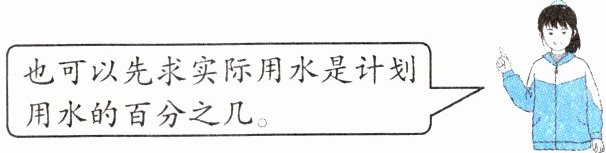 也可以先求实际用水是计划
用水的百分之几。